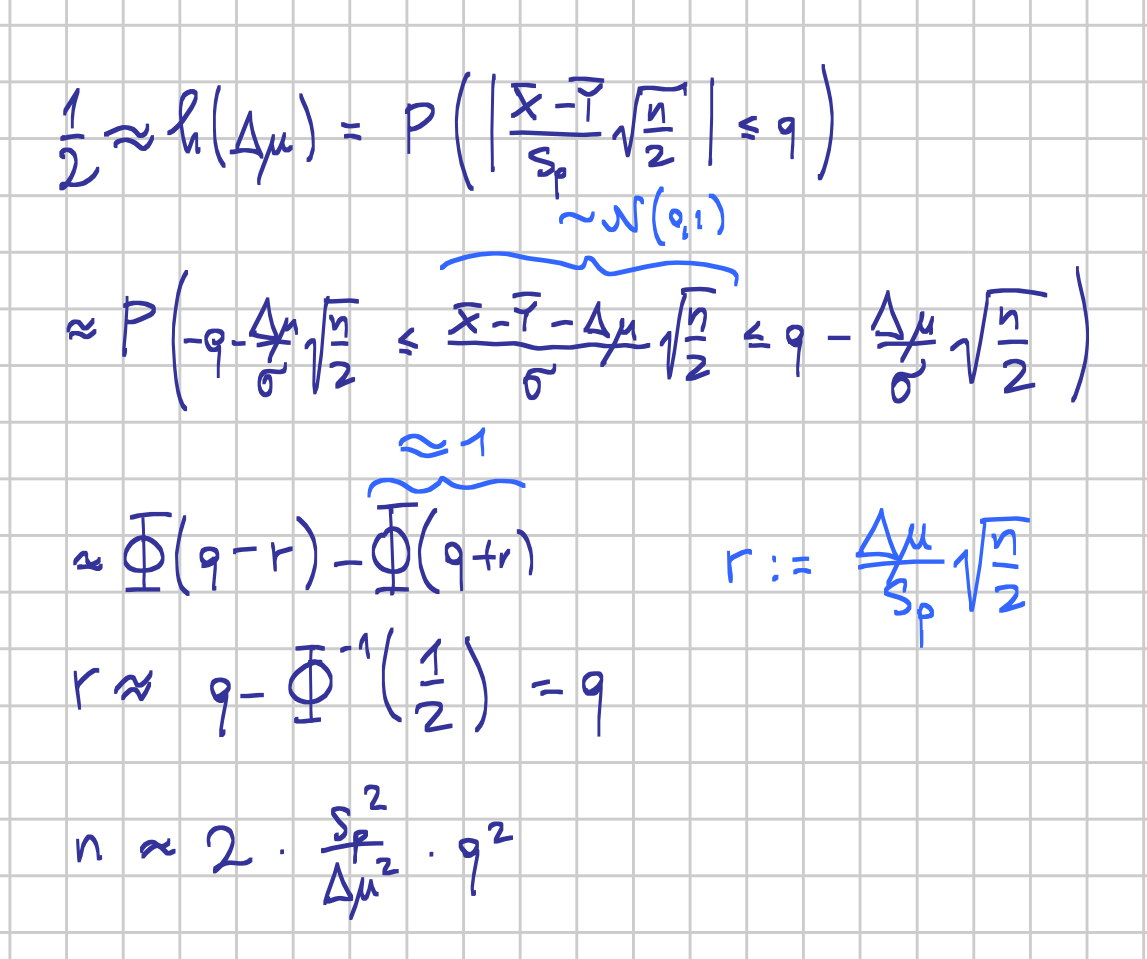 1/2 ≈ h(Δμ) = P( | (X̄ − Ȳ)/S_p √(n/2) | ≤ q )
~ N(0,1)
≈ P( −q − Δμ/σ √(n/2) ≤ (X̄ − Ȳ − Δμ)/σ √(n/2) ≤ q − Δμ/σ √(n/2) )
≈ 1
≈ Φ(q − r) − Φ(q + r)
r := Δμ/S_p √(n/2)
r ≈ q − Φ⁻¹(1/2) = q
n ≈ 2 · S_p²/Δμ² · q²